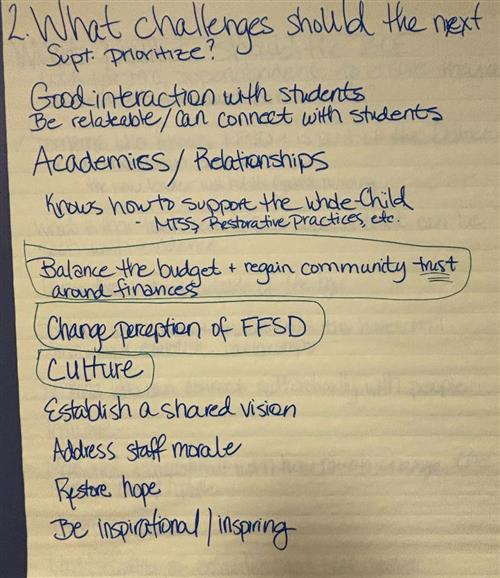 2. What challenges should the next
Supt. prioritize?
Good interaction with students
Be relateable/can connect with students
Academics/Relationships
Knows how to support the whole-child
- MTSS, Restorative practices, etc.
Balance the budget + regain community trust
around finances
Change perception of FFSD
Culture
Establish a shared vision
Address staff morale
Restore hope
Be inspirational/inspiring